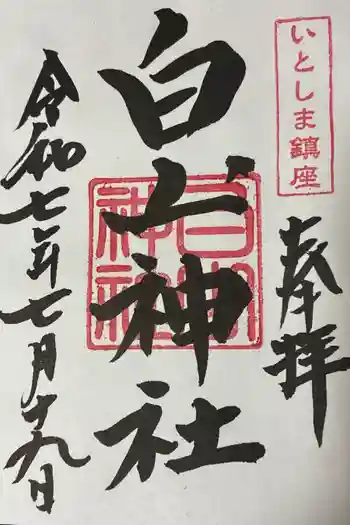 いとしま鎮座
奉拝
白山神社
白山神社
令和七年七月十九日